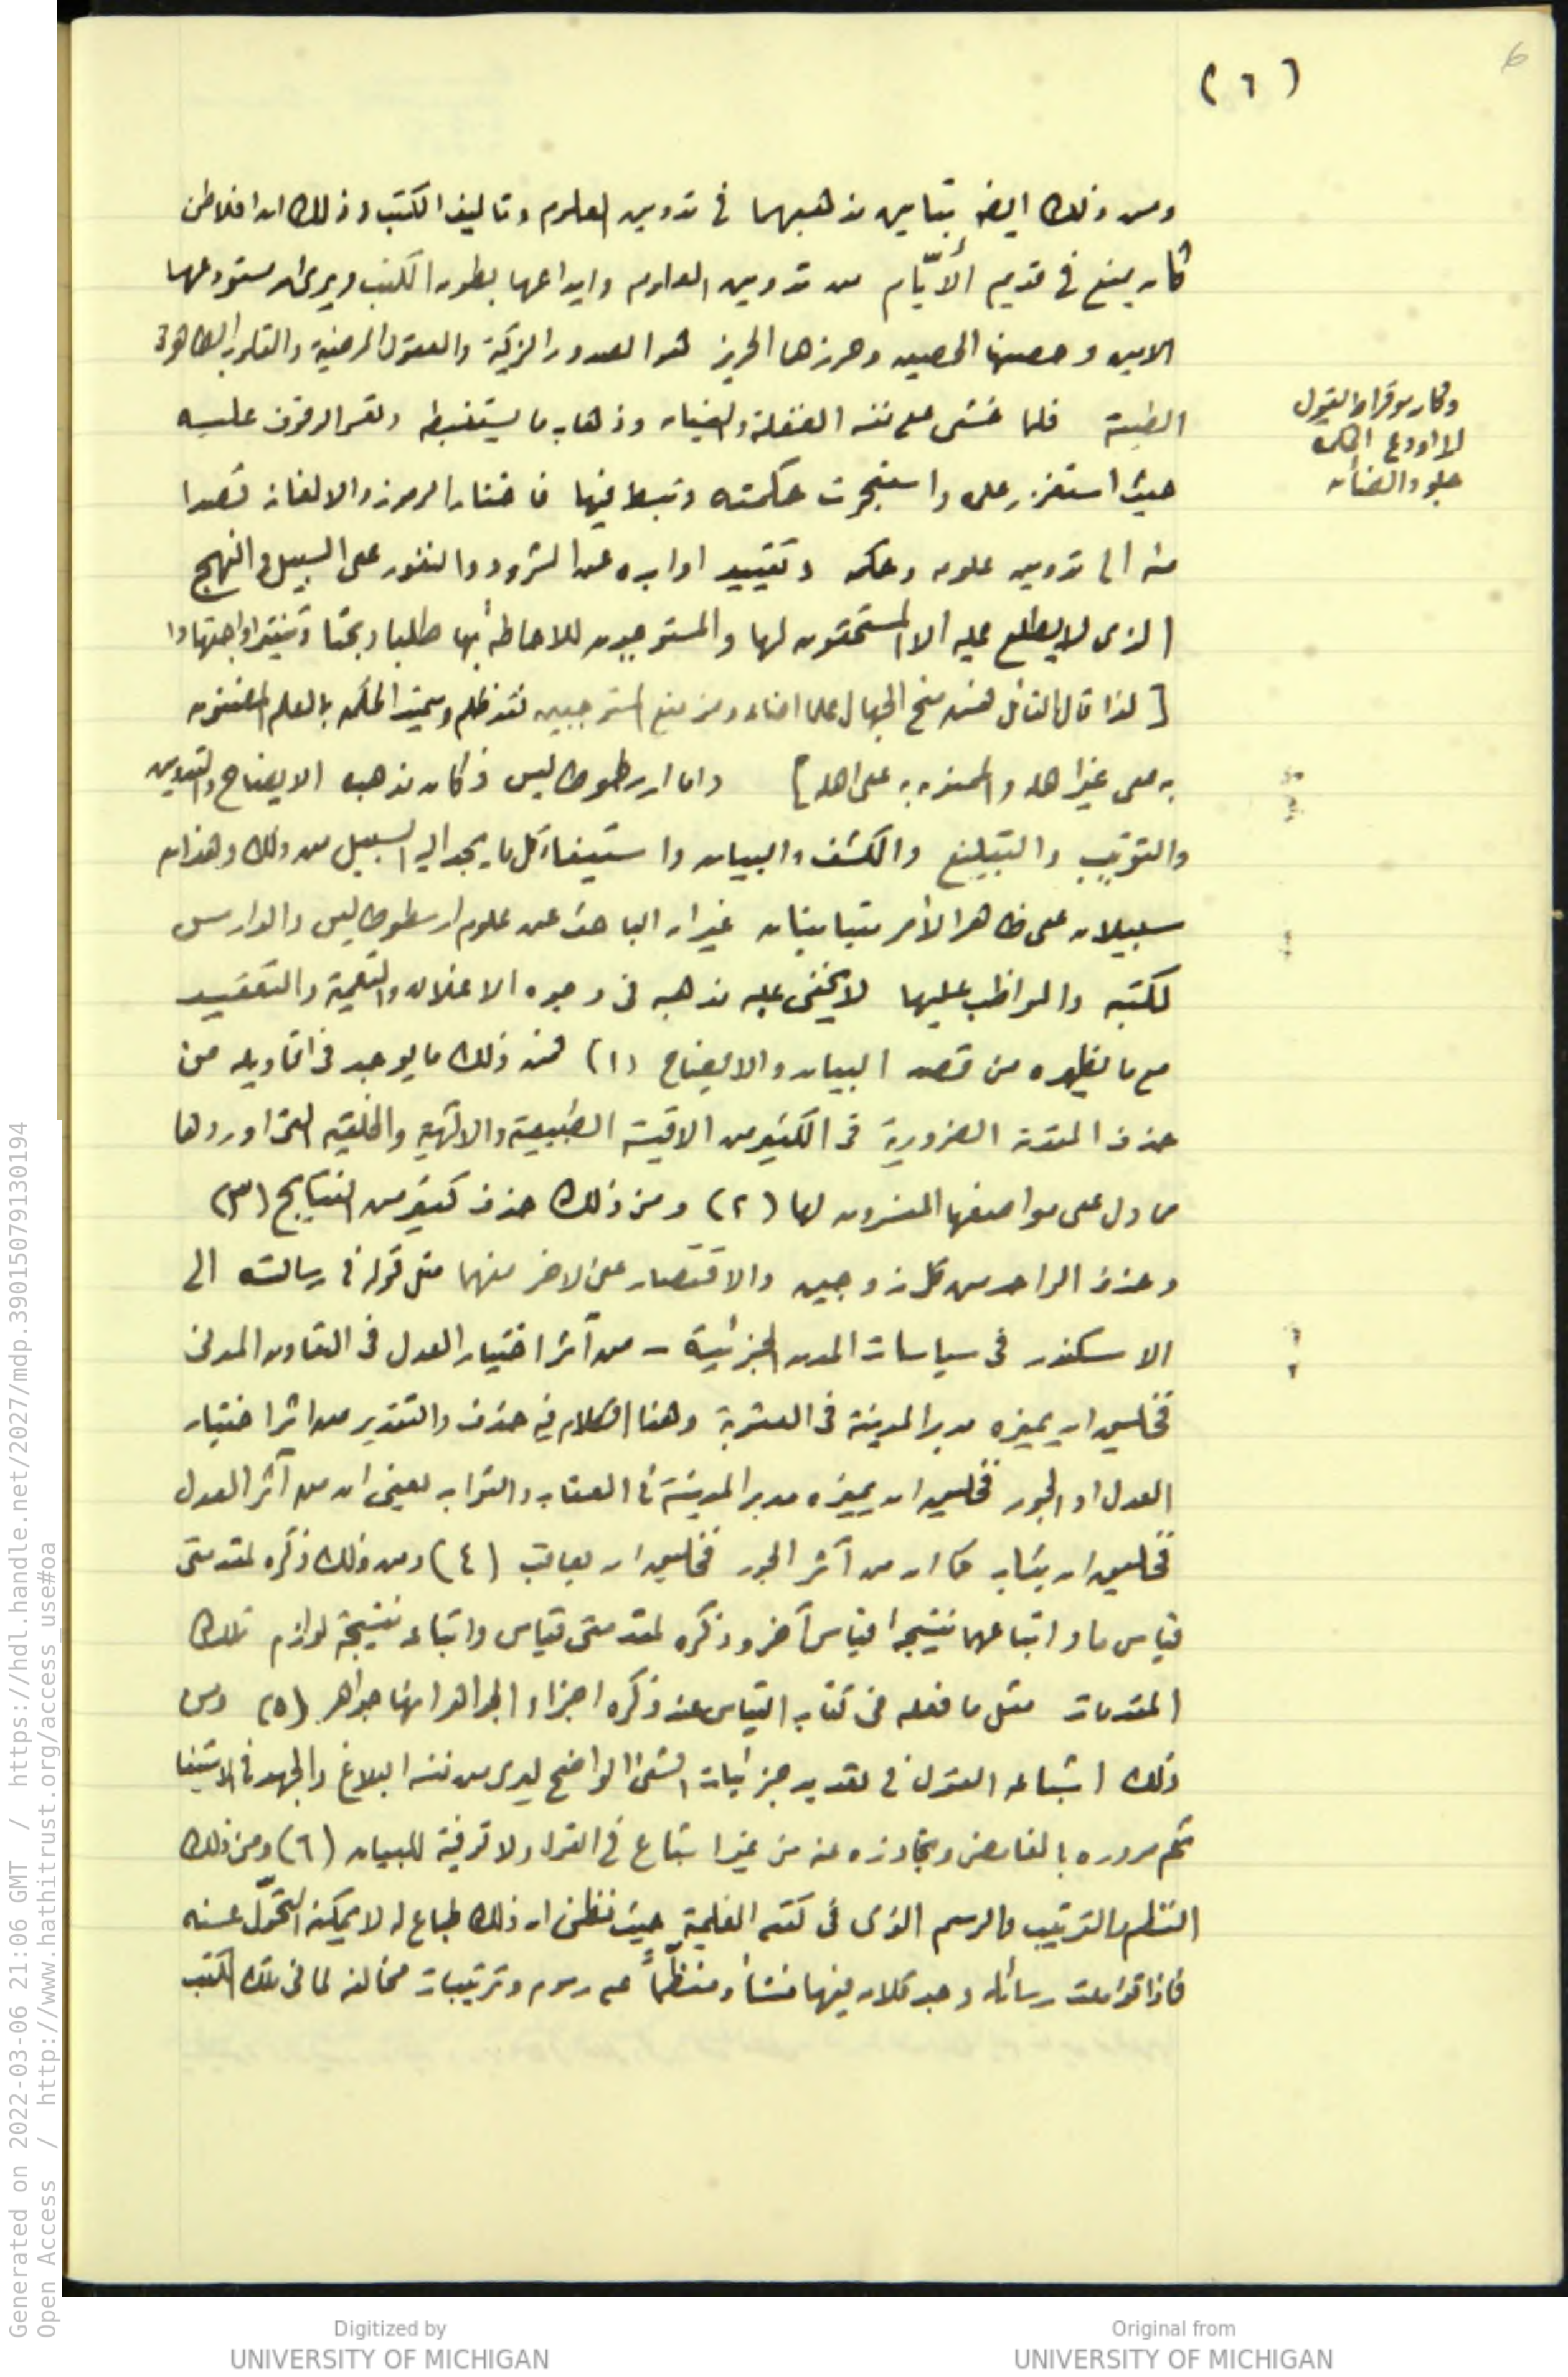 6
(٦)
ومن ذلك ايضا تباين مذهبهما في تدوين العلوم وتاليف الكتب وذلك ان افلاطن
كان يمنع في قديم الأيّام من تدوين العلوم وايداعها بطون الكتب ويرى ان مستودعها
الامين وحصنها الحصين وحرزها الحريز هو الصدور الزكية والعقول المرضية والقلوب الطاهرة
الطيبة فلما خشى على نفسه الغفلة والنسيان وذهاب ما يستنبطه وتعسر الوقوف عليه
حيث استغزر علمه واستبحرت حكمته وتبسط فيها فاختار الرموز والالغاز قصدا
منه الى تدوين علومه وحكمه وتقييد اوابده عن الشرود والنفور على السبيل والنهج
الذى لا يطلع عليه الا المستحقون لها والمستوجبون للاحاطة بها طلبا وبحثا وتنقيرا واجتهادا
[ لذا قال القائل فمن منح الجهال علما اضاعه ومن منع المستوجبين فقد ظلم وسميت الحكمة بالعلم المضنون
به على غير اهله والممنون به على اهله ] واما ارسطوطاليس فكان مذهبه الايضاح والتدوين
والترتيب والتبليغ والكشف والبيان واستيفاء كل ما يجد اليه السبيل من ذلك وهذان
سبيلان على ظاهر الأمر متباينان غير ان الباحث عن علوم ارسطوطاليس والدارس
لكتبه والمواظب عليها لا يخفى عليه مذهبه في وجوه الاغلاق والتعمية والتعقيد
مع ما يظهره من قصد البيان والايضاح (١) فمن ذلك ما يوجد في اقاويله من
حذف المقدمة الضرورية في الكثير من الاقيسة الطبيعية والالهية والخلقية التى اوردها
مما دل على مواضعها المفسرون لها (٢) ومن ذلك حذف كثير من النتايج (٣)
وحذف الواحد من كل زوجين والاقتصار على الاخر منهما مثل قوله في رسالته الى
الاسكندر في سياسات المدن الجزئية – من آثر اختيار العدل في التعاون المدنى
فخليق ان يميزه مدبر المدينة في العقوبة وهذا الكلام فيه حذف والتقدير من اثر اختيار
العدل او الجور فخليق ان يميزه مدبر المدينة في العقاب والثواب يعنى ان من آثر العدل
فخليق ان يثاب كما ان من آثر الجور فخليق ان يعاقب (٤) ومن ذلك ذكره لمقدمتى
قياس ما واتباعهما نتيجة قياس آخر وذكره لمقدمتى قياس واتباعه نتيجة لوازم تلك
المقدمات مثل ما فعله في كتاب القياس عند ذكره اجزاء الجواهر انها جواهر (٥) ومن
ذلك اشباعه القول في تعديد جزئيات الشئ الواضح ليرى من نفسه البلاغ والجهد في الاستيفا
ثم مروره بالغامض وتجاوزه عنه من غير اشباع في القول ولا توفية للبيان (٦) ومن ذلك
النظم والترتيب والرسم الذى في كتبه العلمية حيث تظن ان ذلك طباع له لا يمكنه التحوّل عنه
فاذا تؤملت رسائله وجد كلامه فيها منشأ ومنظّماً على رسوم وترتيبات مخالفة لما في تلك الكتب
وكان سوقراط يقول
لا اودع الحكمة
جلود الضأن
Generated on 2022-03-06 21:06 GMT / https://hdl.handle.net/2027/mdp.39015079130194
Open Access / http://www.hathitrust.org/access_use#oa
Digitized by
UNIVERSITY OF MICHIGAN
Original from
UNIVERSITY OF MICHIGAN